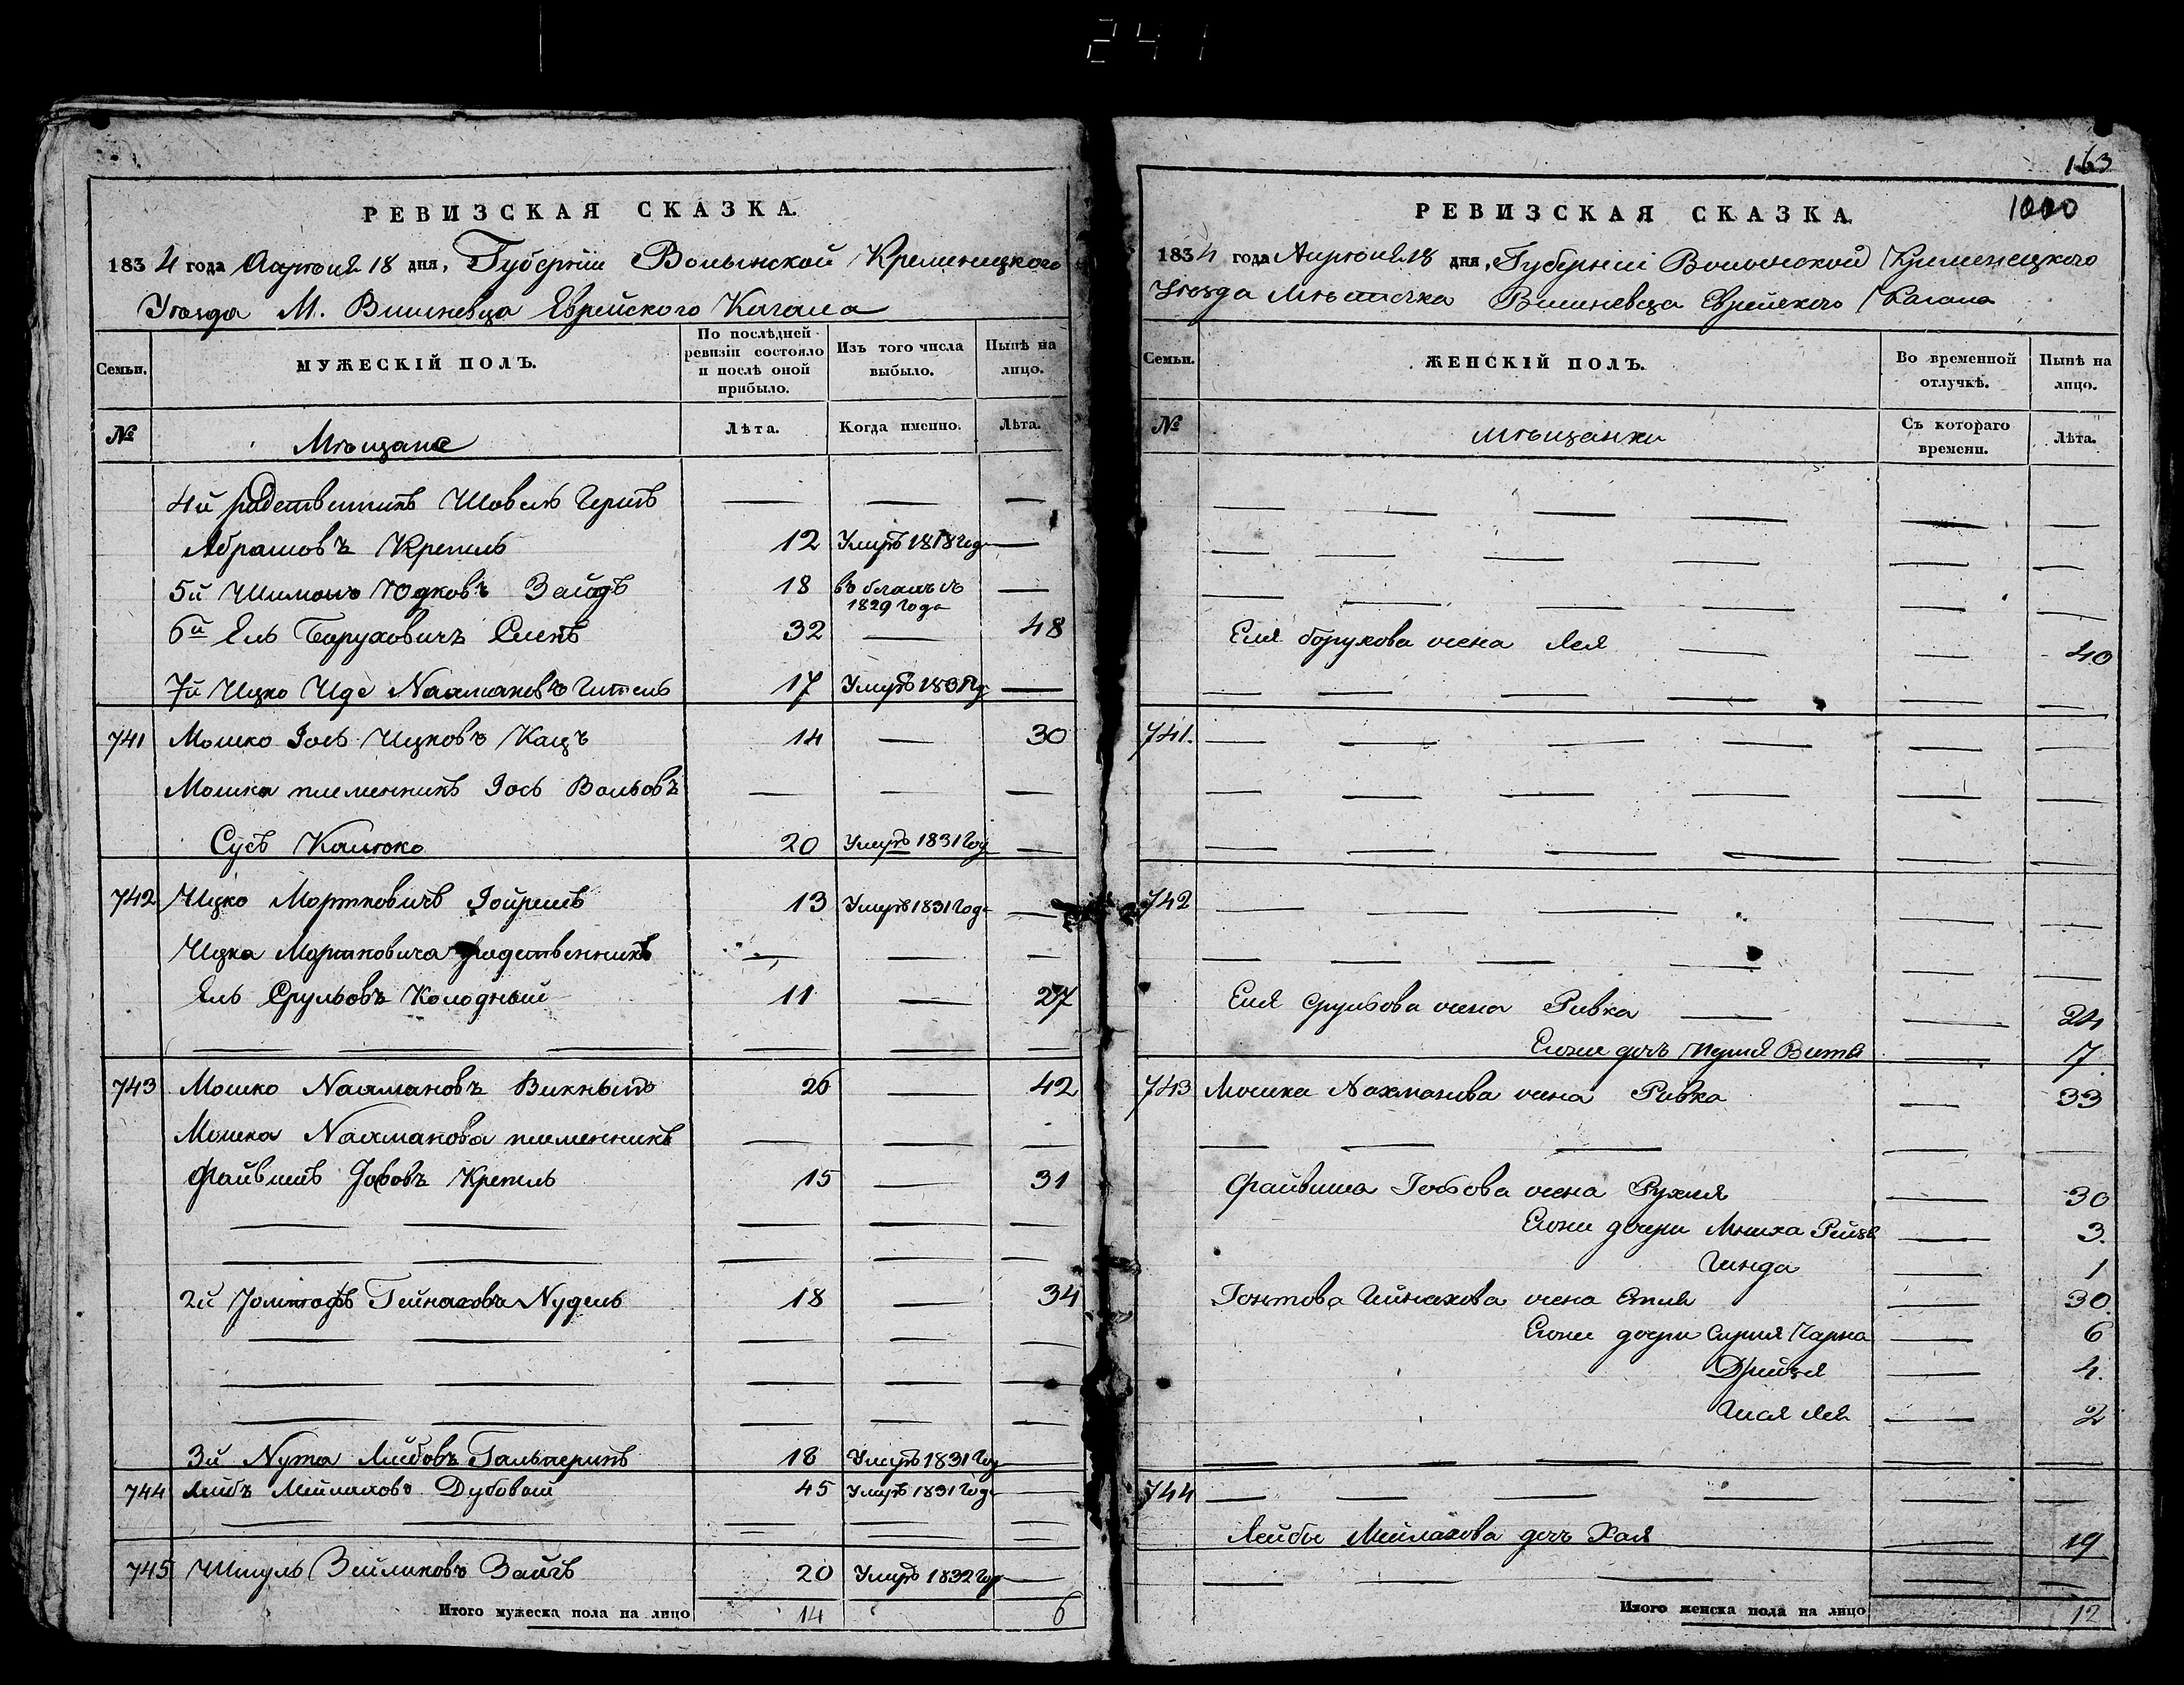 241
РЕВИЗСКАЯ СКАЗКА.
1834 года Апреля 18 дня, Губерніи Волынской Кременецкого
Уезда М. Вишневца Еврейского Кагала
Семьи. МУЖЕСКІЙ ПОЛЪ. По послѣдней ревизіи состояло и послѣ оной прибыло. Изъ того числа выбыло. Нынѣ на лицо.
№ Мѣщане Лѣта. Когда именно. Лѣта.
4й родственникъ Шовель Гершъ — — —
Абрамовъ Крепель 12 Умеръ 1818 Года —
5й Шимонъ Юдковъ Зайдъ 18 въ бегахъ съ 1829 года —
6й Ель Баруховичъ 32 — 48
7й Ицко Иде Нахмановъ 17 Умеръ 1831 Го —
741 Мошко Іось Ицковъ Кацъ 14 — 30
Мошка племенникъ Іось Вольовъ — — —
Сусъ Калюко 20 Умеръ 1831 Год —
742 Ицко Мортковичъ 13 Умеръ 1831 Года —
Ицка Мортковича родственникъ — — —
Ель Срульовъ Колодный 11 — 27
743 Мошко Нахмановъ 26 — 42
Мошка Нахманова племенникъ — — —
Файвишъ Крепель 15 — 31
2й Гейнаховъ Нудель 18 — 34
3й Нута Лейбовъ Гальперинъ 18 Умеръ 1831 Год —
744 Лейбъ Мейлаховъ Дубовый 45 Умеръ 1831 Года —
745 Шмуль Зейликовъ 20 Умеръ 1832 Год —
Итого мужеска пола на лицо 14 6
163
1000
РЕВИЗСКАЯ СКАЗКА.
1834 года Апреля 18 дня, Губерніи Волынской Кременецкого
Уезда Местечка Вишневца Еврейского Кагала
Семьи. ЖЕНСКІЙ ПОЛЪ. Во временной отлучкѣ. Нынѣ на лицо.
№ мѣщанки Съ котораго времени. Лѣта.
Еля борухова жена Лея — — 40
741.
742
Еля Срульова жена Ривка — — 24
Егоже дочь Перля Витя — 7.
743 Мошка Нахманова жена Ривка — 33
Файвиша жена Рухля — 30
Егоже дочери — 3.
Гинда — 1
Гейнахова жена — 30.
Егоже дочери Сурля Чарна — 6
Дрейзя — 4.
Лея — 2
744
Лейбы Мейлахова дочь Хая — 19
Итого женска пола на лицо 12